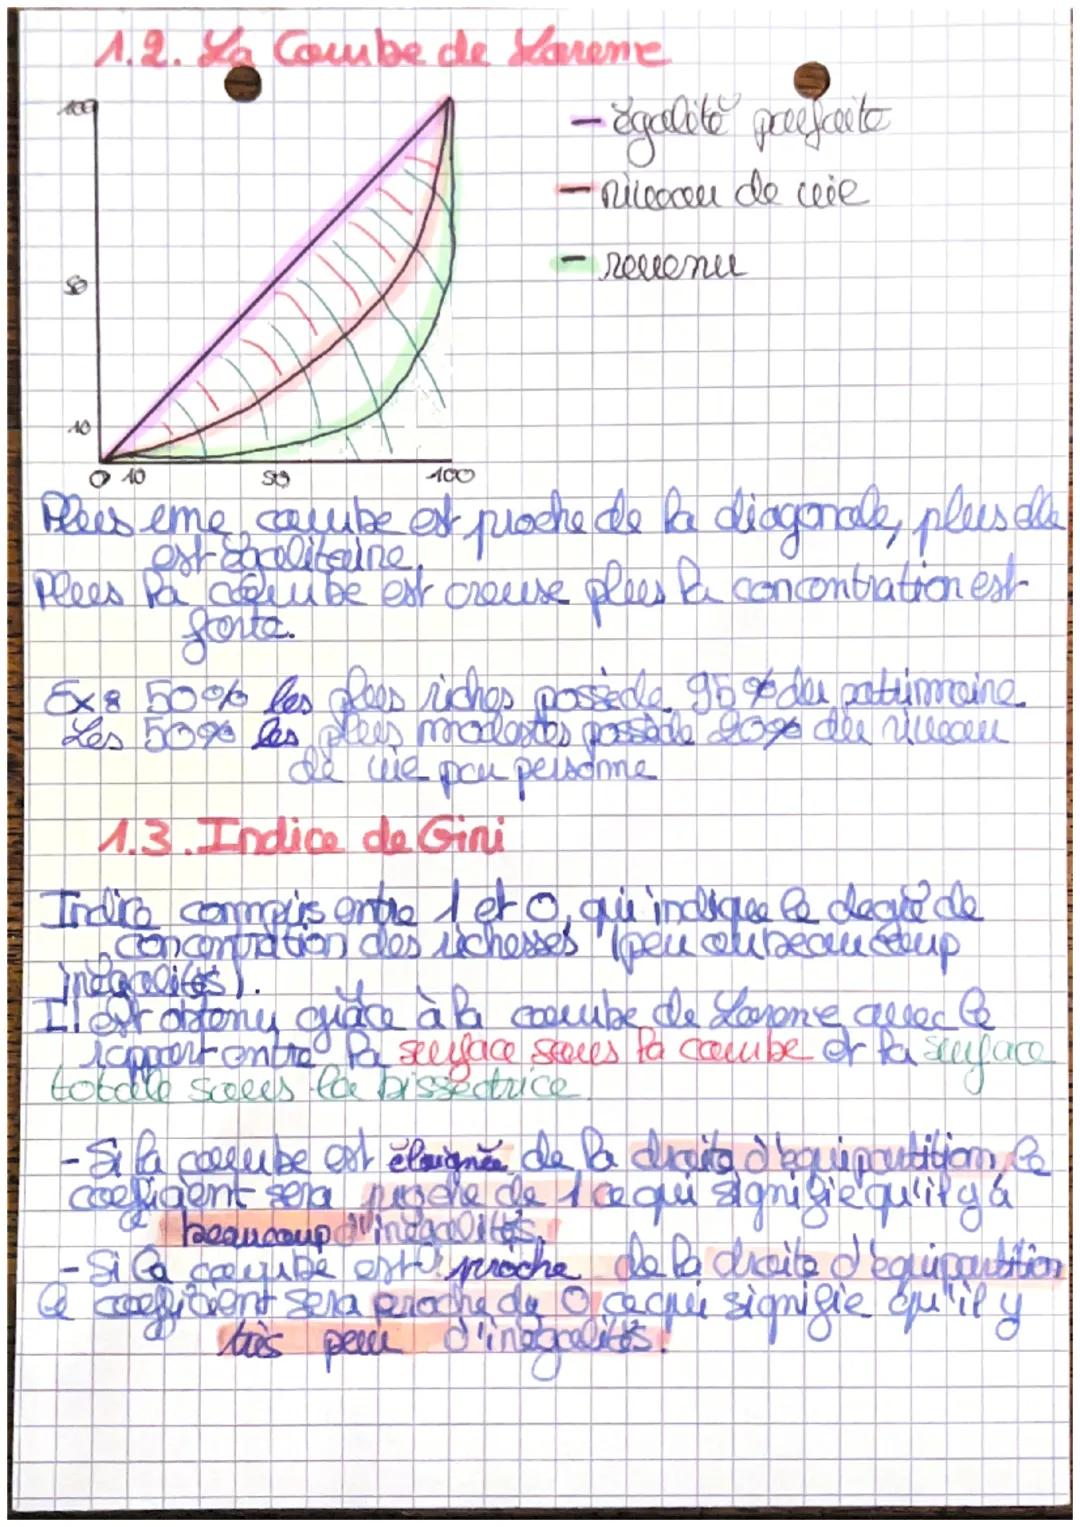 1.2. La Courbe de Lorenz
100
- égalité parfaite
- niveau de vie
50
- revenu
10
0 10 50 100
Plus une courbe est proche de la diagonale, plus elle
est égalitaire.
Plus la courbe est creuse plus la concentration est
forte.
Ex : 50% les plus riches possède 95% du patrimoine.
Les 50% les plus modestes possède 20% du niveau
de vie par personne
1.3. Indice de Gini
Indice compris entre 1 et 0, qui indique le degré de
concentration des richesses (peu ou beaucoup
inégalités).
Il est obtenu grâce à la courbe de Lorenz avec le
rapport entre la surface sous la courbe et la surface
totale sous la bissectrice.
- Si la courbe est éloignée de la droite d'équipartition le
coefficient sera proche de 1 ce qui signifie qu'il y a
beaucoup d'inégalités.
- Si la courbe est proche de la droite d'équipartition
le coefficient sera proche de 0 ce qui signifie qu'il y
très peu d'inégalités.